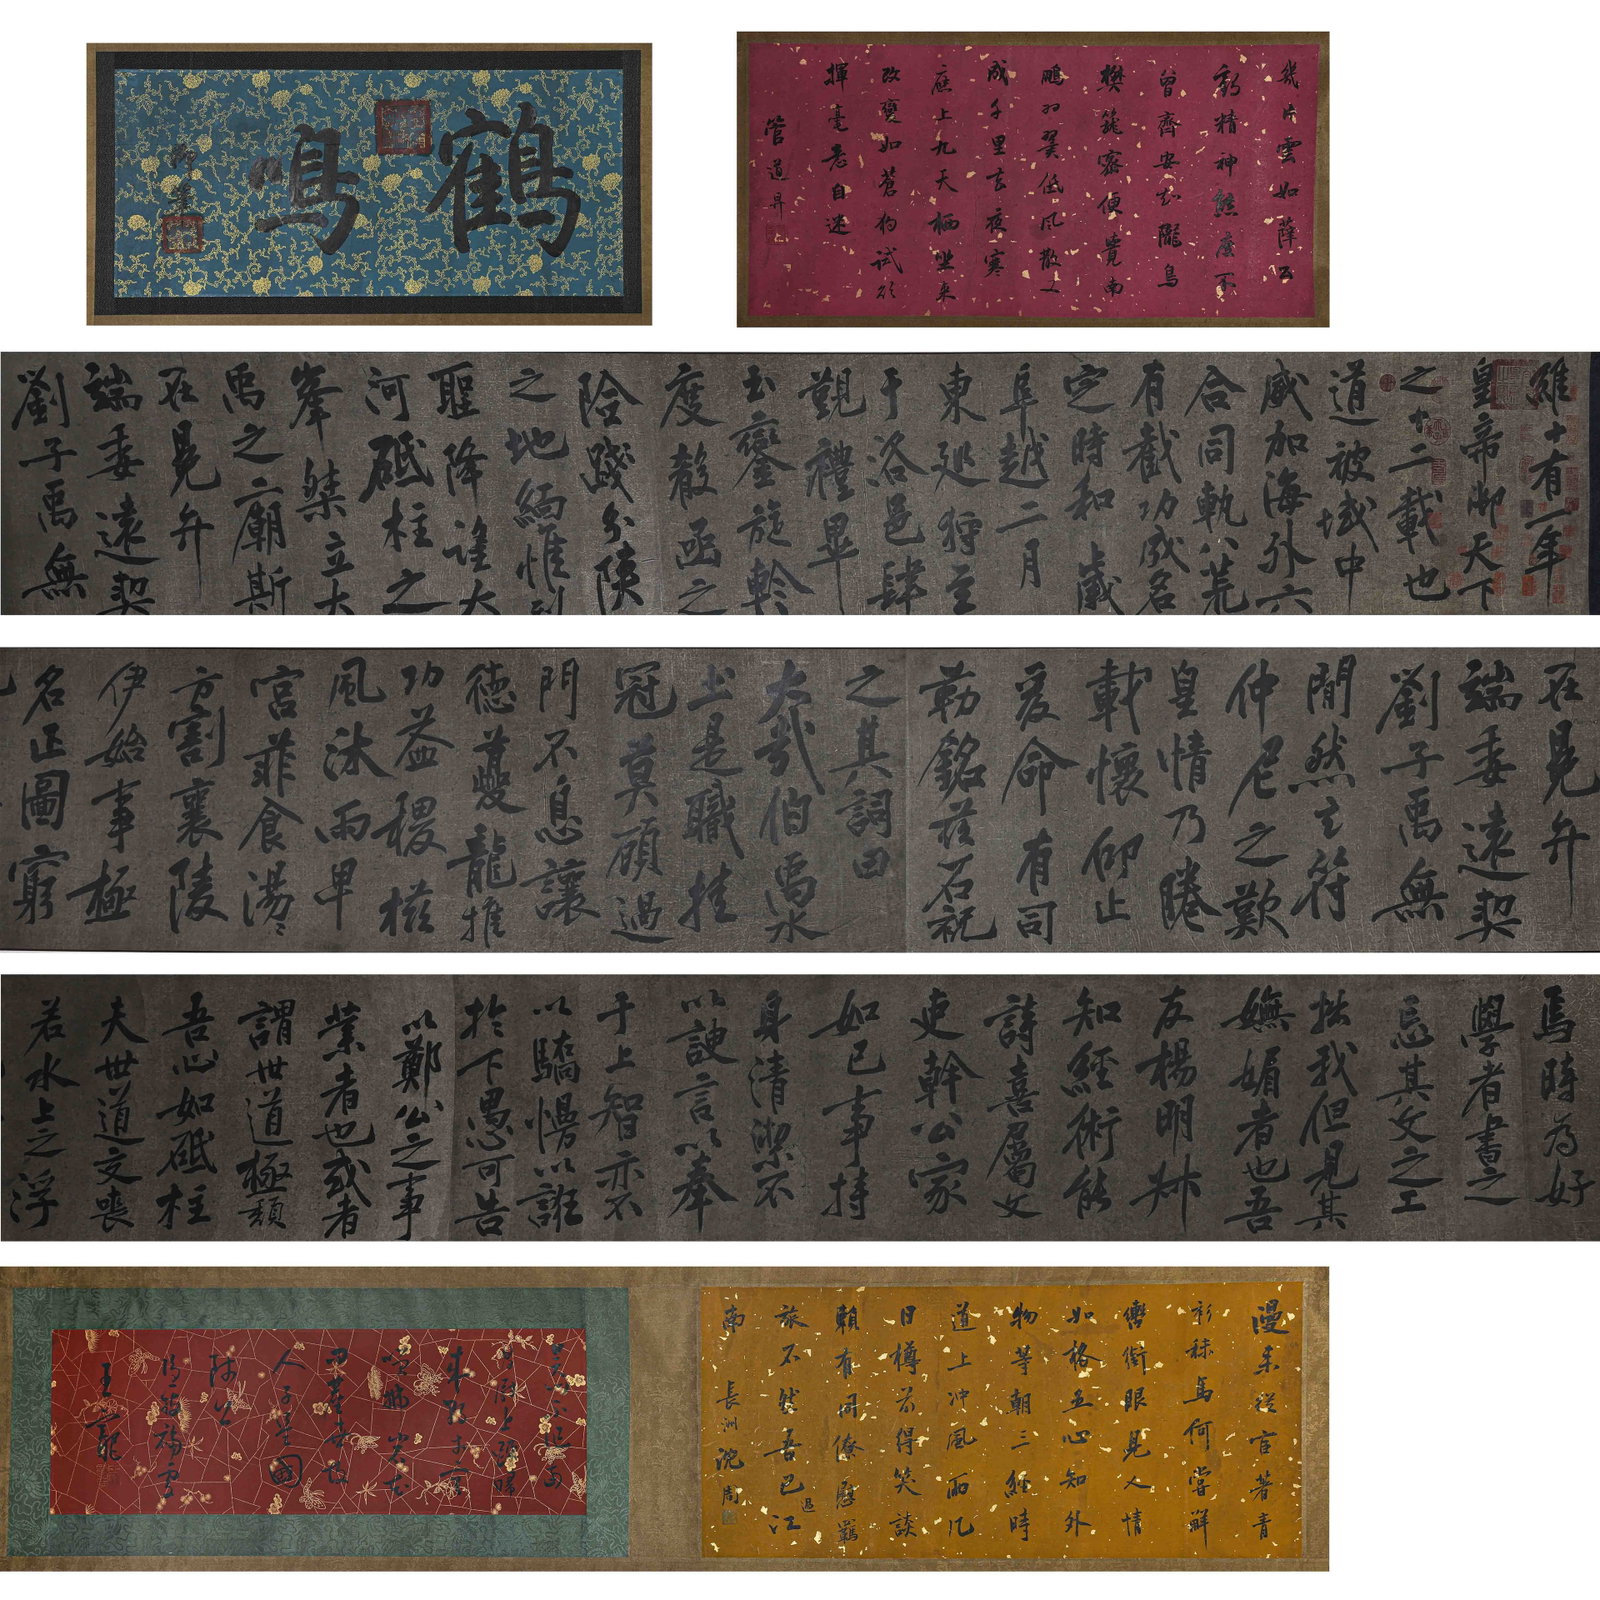 鶴鳴
御筆
幾片雲如薛公
鶴精神態度不
曾齊安知隴鳥
樊籠密便覺南
鵬羽翼低風散
成千里去夜寒
應上九天栖坐來
改變如蒼狗試欲
揮毫意自迷
管道昇
維十有一年
皇帝御天下
之十二載也
道被域中
威加海外六
合同軌八荒
有截功成名
定時和歲
阜越二月
東巡狩至
于洛邑肆
覲禮畢
玉鑾旋軫
度殽函之
險踐分陝
之地緬惟列
聖降謠大
河砥柱之
峯桀立大
禹之廟斯
在晃弁
端委遠契
劉子禹無
在晃弁
端委遠契
劉子禹無
間然玄符
仲尼之歎
皇情乃睠
載懷仰止
爰命有司
勒銘茲石祝
之其詞曰
大哉伯禹水
土是職挂
冠莫顧過
門不息讓
德夔龍推
功益稷櫛
風沐雨卑
宮菲食湯湯
方割襄陵
伊始事極
名正圖窮
焉時為好
學者書之
忘其文之工
拙我但見其
嫵媚者也吾
友楊明叔
知經術能
詩喜屬文
吏幹公家
如己事持
身清潔不
以諛言以奉
于上智亦不
以驕慢以誑
於下愚可告
以鄭公之事
業者也或者
謂世道極頹
吾心如砥柱
夫世道交喪
若水上之浮
王寵
漫來從官著青
衫秣馬何嘗解
轡銜眼見人情
如格五心知外
物等朝三經時
道上冲風雨几
日樽前得笑談
賴有同僚慰羈
旅不然吾已過江
南
長洲沈周